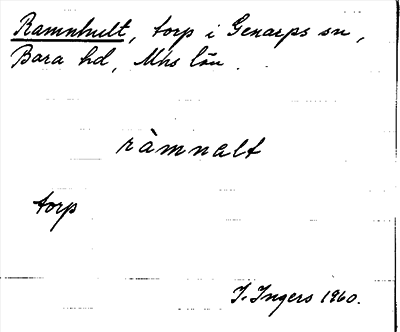 Ramnhult, torp i Genarps sn,
Bara hd, Mhs län.
ràmnalt
torp
I. Ingers 1960.